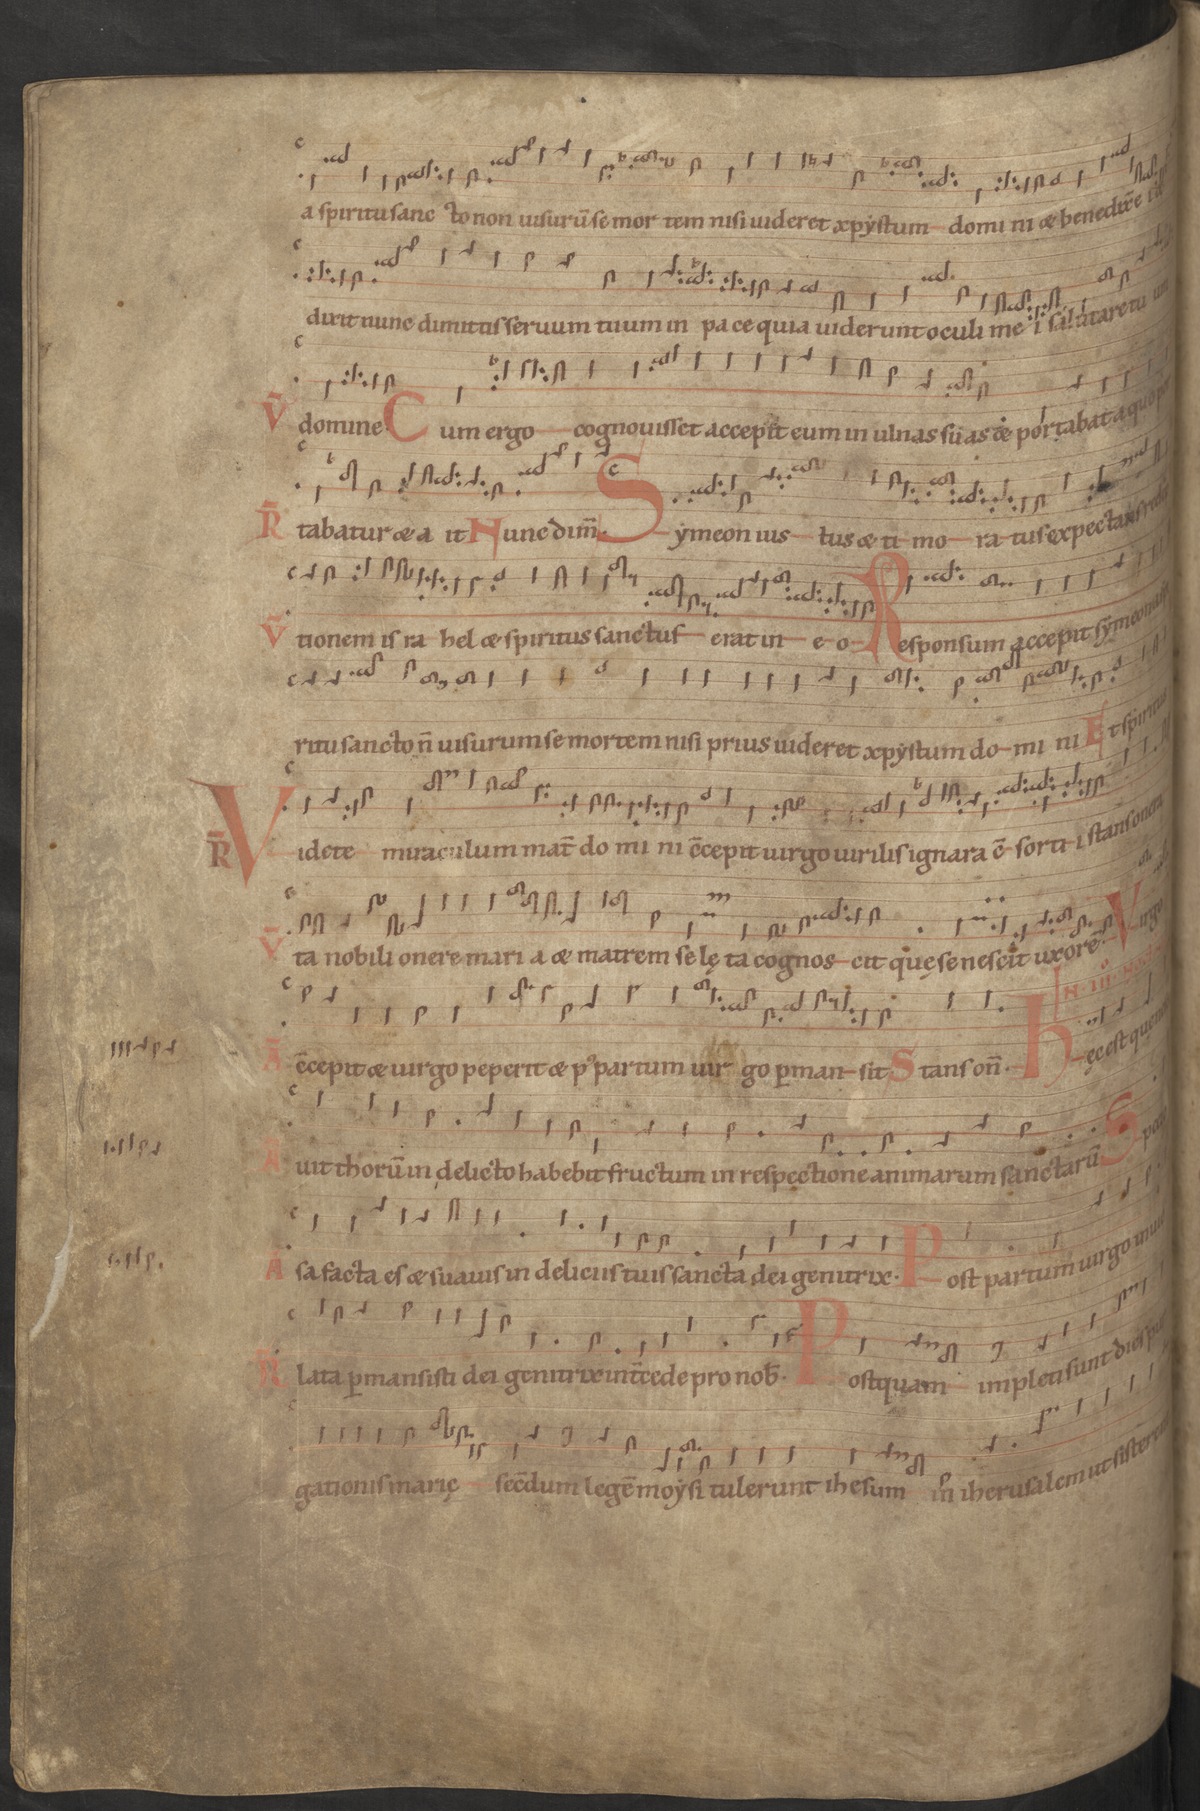 a spiritu sanc to non uisurū se mor tem nisi uideret xpӱstum domi ni & benedix̄e
dixit nunc dimittis seruum tuum in pa ce quia uiderunt oculi me i salutare tu um
V̄ domine Cum ergo cognouisset accepit eum in ulnas suas & portabat a quo por
R̄ tabatur & a it Nunc dim̄. Sẏmeon ius tus & ti mo ra tus expectans
V̄ tionem is ra hel & spiritus sanctus erat in e o Responsum accepit sẏmeon
ritu sancto n̄ uisurum se mortem nisi prius uideret xpẏstum do mi ni Et spiritus
R̄ Videte miraculum mat̄ do mi ni c̄cepit uirgo uirilis ignara c̄ sorti i stans onera
V̄ ta nobili onere mari a & matrem se lę ta cognos cit quę se nescit uxorē. Virgo
IN III NOCT
Ā c̄cepit & uirgo peperit & p' partum uir go p̄man sit Stans on̄. Hęc est quę
A uit thorū in delicto habebit fructum in respectione animarum sanctarū S
A sa facta es & suauis in deliciis tuis sancta dei genitrix. Post partum uirgo inui
R̄ lata p̄mansisti dei genitrix int̄cede pro nob̄. Postquam impleti sunt dies pur
gationis marię sec̄dum legē moẏsi tulerunt ihesum in iherusalem ut sisterent